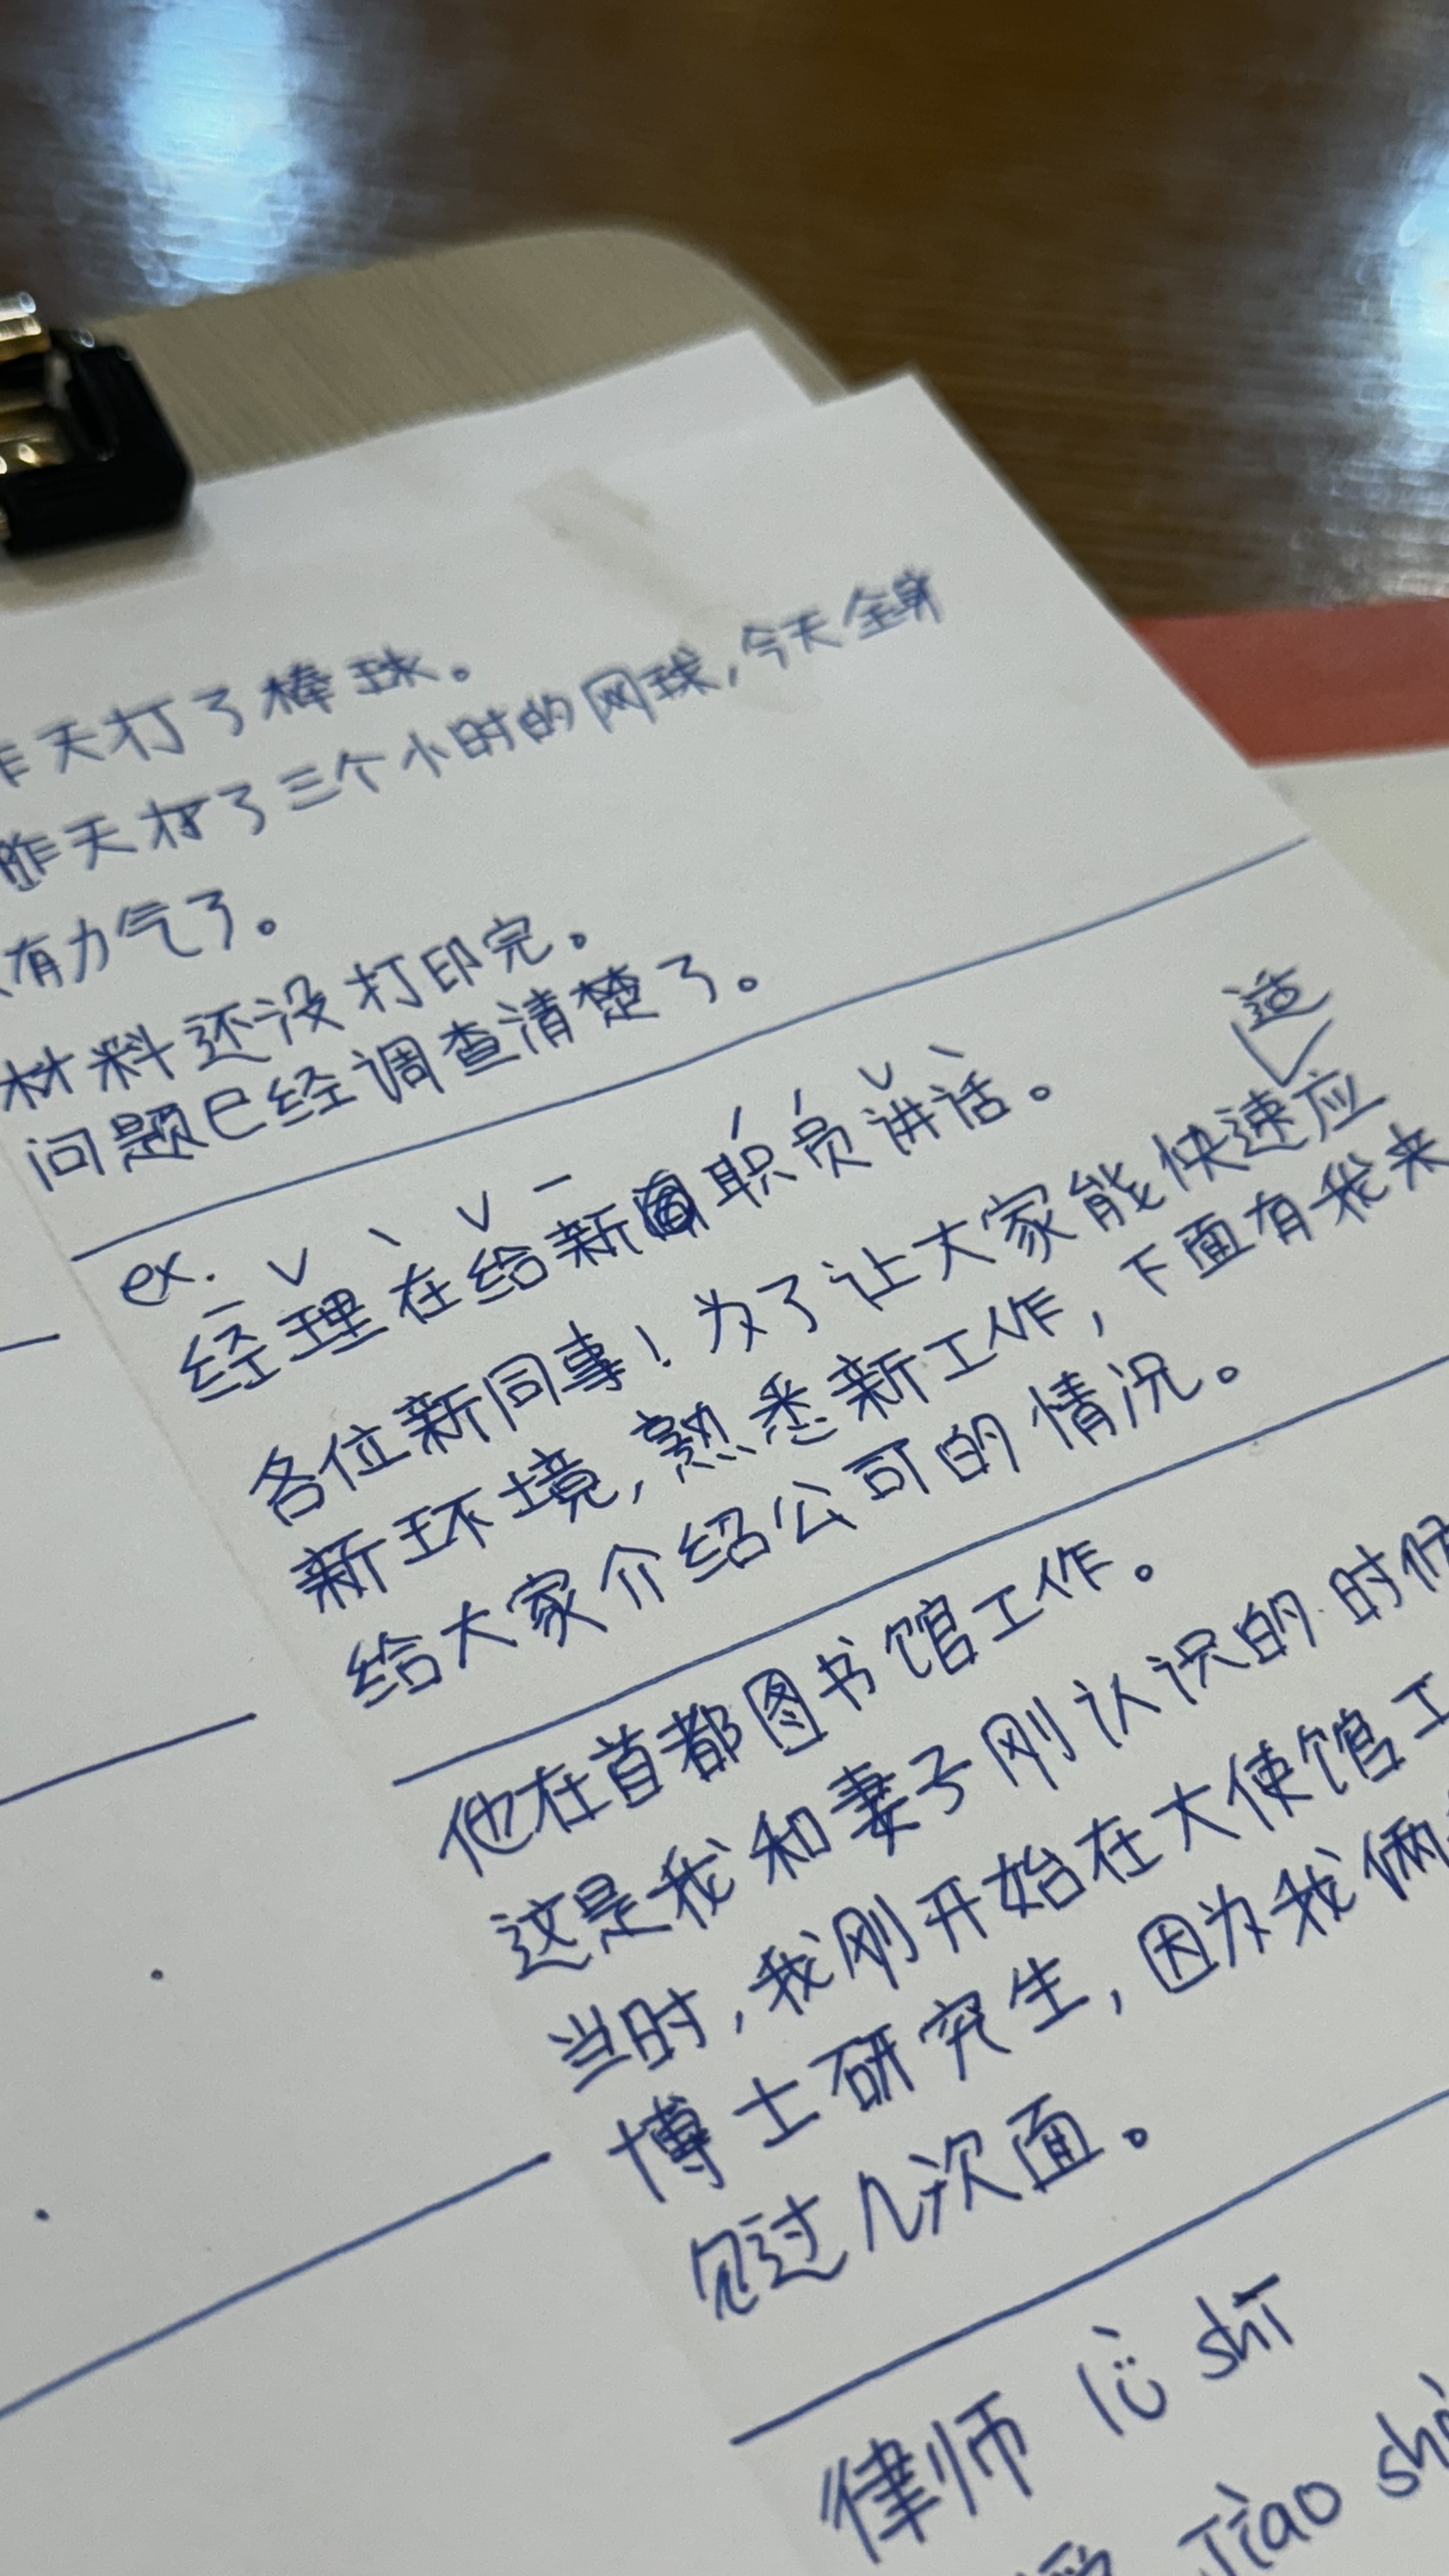 昨天打了棒球。
昨天打了三个小时的网球，今天全身
有力气了。
材料还没打印完。
问题已经调查清楚了。
ex.
经理在给新职员讲话。
适
各位新同事！为了让大家能快速应
新环境，熟悉新工作，下面有我来
给大家介绍公司的情况。
他在首都图书馆工作。
这是我和妻子刚认识的时候
当时，我刚开始在大使馆工
博士研究生，因为我俩
见过几次面。
律师 lǜ shī
jiào